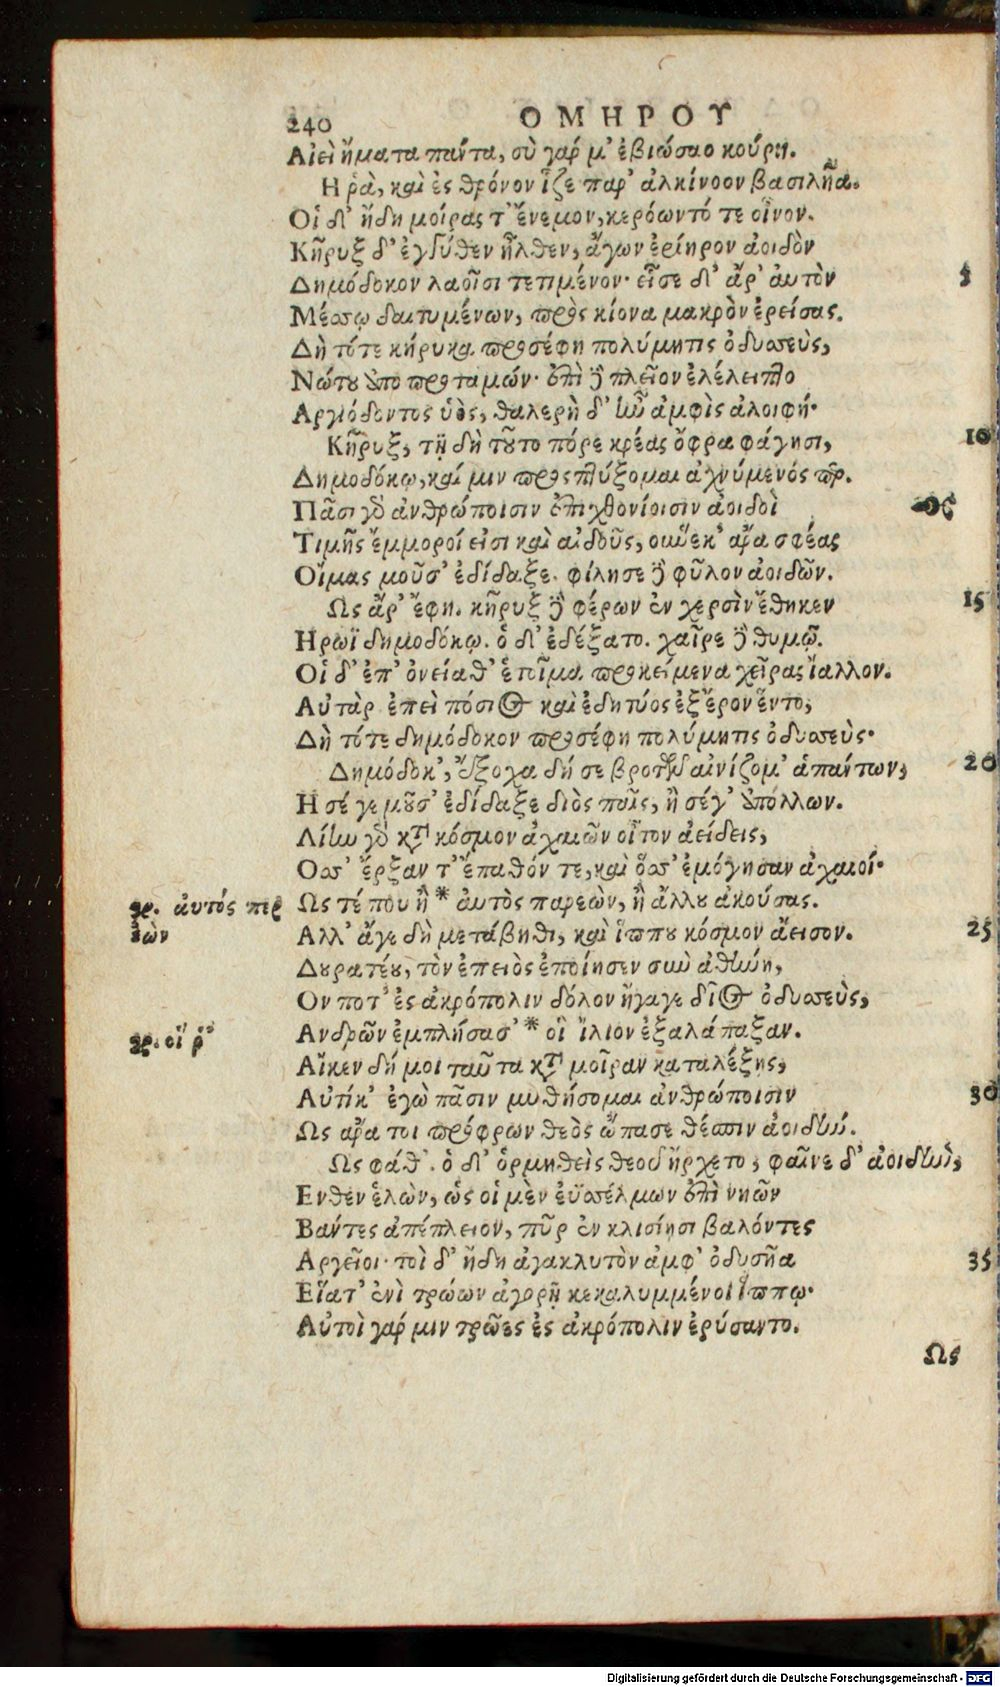 240 ΟΜΗΡΟΥ
Αἰεὶ ἤματα πάντα, σὺ γάρ μ' ἐβιώσαο κούρη.
Η ῥὰ, καὶ ἐς θρόνον ἷζε παρ' ἀλκίνοον βασιλῆα.
Οἱ δ' ἤδη μοίρας τ' ἔνεμον, κερόωντό τε οἶνον.
Κῆρυξ δ' ἐγγύθεν ἦλθεν, ἄγων ἐρίηρον ἀοιδὸν
Δημόδοκον λαοῖσι τετιμένον· εἷσε δ' ἄρ' αὐτὸν 5
Μέσσῳ δαιτυμένων, πρὸς κίονα μακρὸν ἐρείσας.
Δὴ τότε κήρυκα προσέφη πολύμητις ὀδυσσεὺς,
Νώτου ἀποπροταμών· ἐπὶ δὲ πλεῖον ἐλέλειπτο
Αργιόδοντος ὑὸς, θαλερὴ δ' ἦν ἀμφὶς ἀλοιφή·
Κῆρυξ, τῇ δὴ τοῦτο πόρε κρέας ὄφρα φάγησι, 10
Δημοδόκῳ, καί μιν προσπτύξομαι ἀχνύμενός περ.
Πᾶσι γὰρ ἀνθρώποισιν ἐπιχθονίοισιν ἀοιδοὶ
Τιμῆς ἔμμοροί εἰσι καὶ αἰδοῦς, οὕνεκ' ἄρα σφέας
Οἴμας μοῦσ' ἐδίδαξε. φίλησε δὲ φῦλον ἀοιδῶν.
Ως ἄρ' ἔφη. κῆρυξ δὲ φέρων ἐν χερσὶν ἔθηκεν 15
Ηρωϊ δημοδόκῳ. ὁ δ' ἐδέξατο. χαῖρε δὲ θυμῷ.
Οἱ δ' ἐπ' ὀνείαθ' ἑτοῖμα προκείμενα χεῖρας ἴαλλον.
Αὐτὰρ ἐπεὶ πόσιος καὶ ἐδητύος ἐξ ἔρον ἕντο,
Δὴ τότε δημόδοκον προσέφη πολύμητις ὀδυσσεὺς·
Δημόδοκ', ἔξοχα δή σε βροτῶν αἰνίζομ' ἁπάντων, 20
Η σέ γε μοῦσ' ἐδίδαξε διὸς παῖς, ἢ σέγ' ἀπόλλων.
Λίην γὰρ κατὰ κόσμον ἀχαιῶν οἶτον ἀείδεις,
Οσσ' ἔρξαν τ' ἔπαθόν τε, καὶ ὅσσ' ἐμόγησαν ἀχαιοί·
γρ. αὐτός περ Ως τέ που ἢ * αὐτὸς παρεὼν, ἢ ἄλλου ἀκούσας.
ἐών Αλλ' ἄγε δὴ μετάβηθι, καὶ ἵππου κόσμον ἄεισον. 25
Δουρατέου, τὸν ἐπειὸς ἐποίησεν σὺν ἀθήνῃ,
Ον ποτ' ἐς ἀκρόπολιν δόλον ἤγαγε δῖος ὀδυσσεὺς,
γρ. οἵ ῥ' Ανδρῶν ἐμπλήσας' * οἳ ἴλιον ἐξαλάπαξαν.
Αἴκεν δή μοι ταῦτα κατὰ μοῖραν καταλέξῃς,
Αὐτίκ' ἐγὼ πᾶσιν μυθήσομαι ἀνθρώποισιν 30
Ως ἄρα τοι πρόφρων θεὸς ὤπασε θέσπιν ἀοιδήν.
Ως φάθ'. ὁ δ' ὁρμηθεὶς θεοῦ ἤρχετο, φαῖνε δ' ἀοιδὴν,
Ενθεν ἑλὼν, ὡς οἱ μὲν ἐϋσσέλμων ἐπὶ νηῶν
Βάντες ἀπέπλειον, πῦρ ἐν κλισίησι βαλόντες
Αργεῖοι· τοὶ δ' ἤδη ἀγακλυτὸν ἀμφ' ὀδυσῆα 35
Εἵατ' ἐνὶ τρώων ἀγορῇ κεκαλυμμένοι ἵππῳ·
Αὐτοὶ γάρ μιν τρῶες ἐς ἀκρόπολιν ἐρύσαντο.
Ως
Digitalisierung gefördert durch die Deutsche Forschungsgemeinschaft - DFG